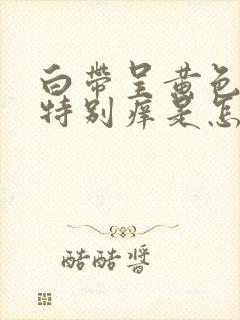 白帶呈黄色
特别痒是怎
酷酷醬